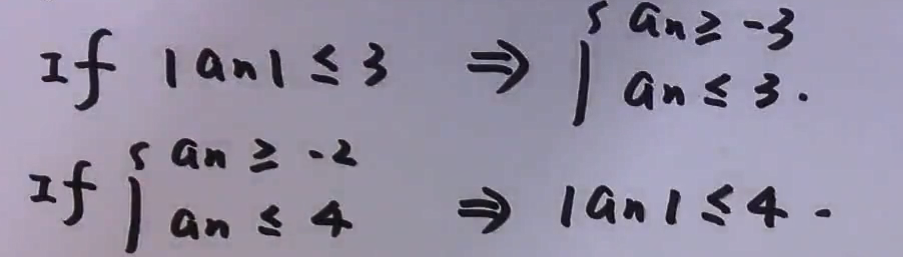 If |an| ≤ 3 ⇒ { an ≥ -3
an ≤ 3.
If { an ≥ -2
an ≤ 4 ⇒ |an| ≤ 4.